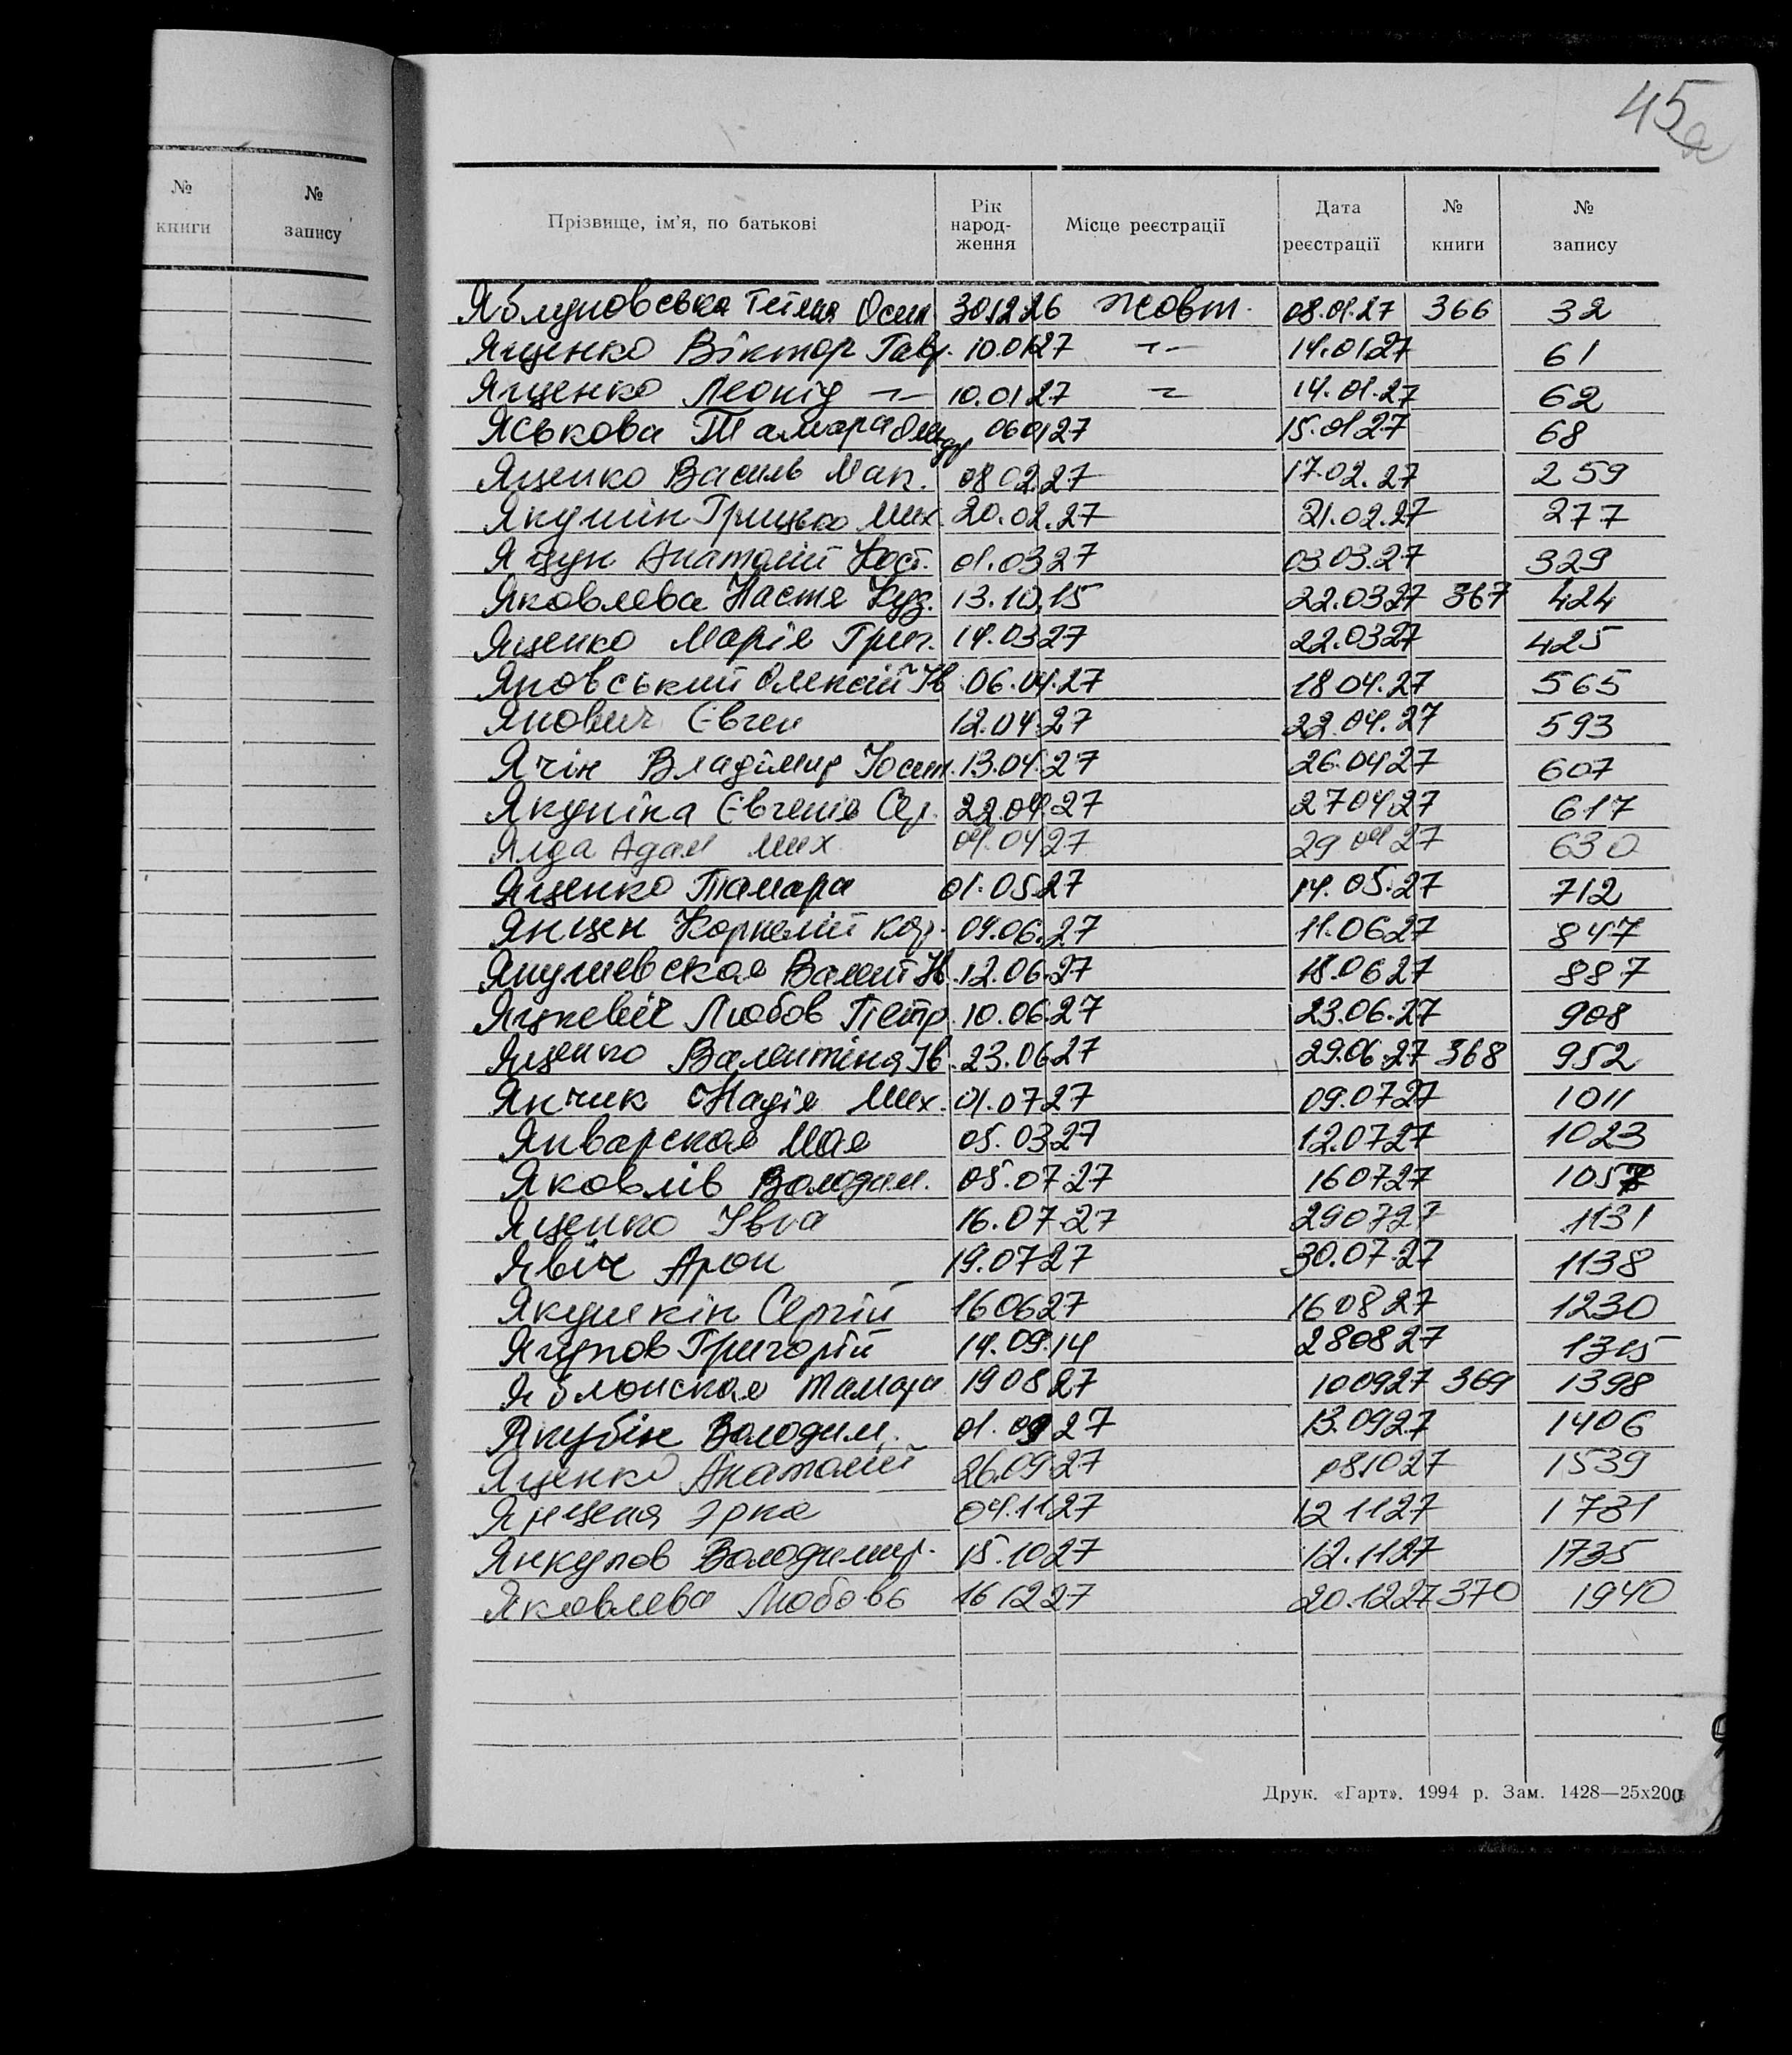 45а
№ книги № запису
Прізвище, ім'я, по батькові Рік народ-ження Місце реєстрації Дата реєстрації № книги № запису
Яблуновська Тетяна Осип 30.12.26 Жовт. 08.01.27 366 32
Яценко Віктор Гавр. 10.01.27 -"- 14.01.27 61
Яценко Леонід -"- 10.01.27 -"- 14.01.27 62
Яськова Тамара 06.01.27 15.01.27 68
Яценко Василь Мак. 08.02.27 17.02.27 259
Якушін Грицько Мих. 20.02.27 21.02.27 277
Яцун Анатолій Кост. 01.03.27 03.03.27 329
Яковлева Настя Куз. 13.10.15 22.03.27 367 424
Яценко Марія Григ. 14.03.27 22.03.27 425
Яновський Олексій Ів 06.04.27 18.04.27 565
Янович Євген 12.04.27 22.04.27 593
Ячін Владімир 13.04.27 26.04.27 607
Якуніна Євгенія Сер. 22.04.27 27.04.27 617
Ялда Адам Мих 04.27 29.04.27 630
Яценко Тамара 01.05.27 14.05.27 712
Янцен Корнелій Кор. 09.06.27 11.06.27 847
Янушевская Валент Ів. 12.06.27 18.06.27 887
Яцкевіч Любов Петр. 10.06.27 23.06.27 908
Яценко Валентіна Ів. 23.06.27 29.06.27 368 952
Янчик Надія Мих. 01.07.27 09.07.27 1011
Январская Мая 05.03.27 12.07.27 1023
Яковлів Володим. 05.07.27 16.07.27
Яценко Івга 16.07.27 29.07.27 1131
Явіч Арон 19.07.27 30.07.27 1138
Якушкін Сергій 16.06.27 16.08.27 1230
Ягупов Григорій 14.09.14 28.08.27 1315
Яблонская Тамара 19.08.27 10.09.27 369 1398
Якубін Володим. 01.09.27 13.09.27 1406
Яценко Анатолій 26.09.27 08.10.27 1539
Янценя Эрна 04.11.27 12.11.27 1731
Янкупов Володимир. 15.10.27 12.11.27 1735
Яковлева Любовь 16.12.27 20.12.27 370 1940
Друк. «Гарт». 1994 р. Зам. 1428—25х200